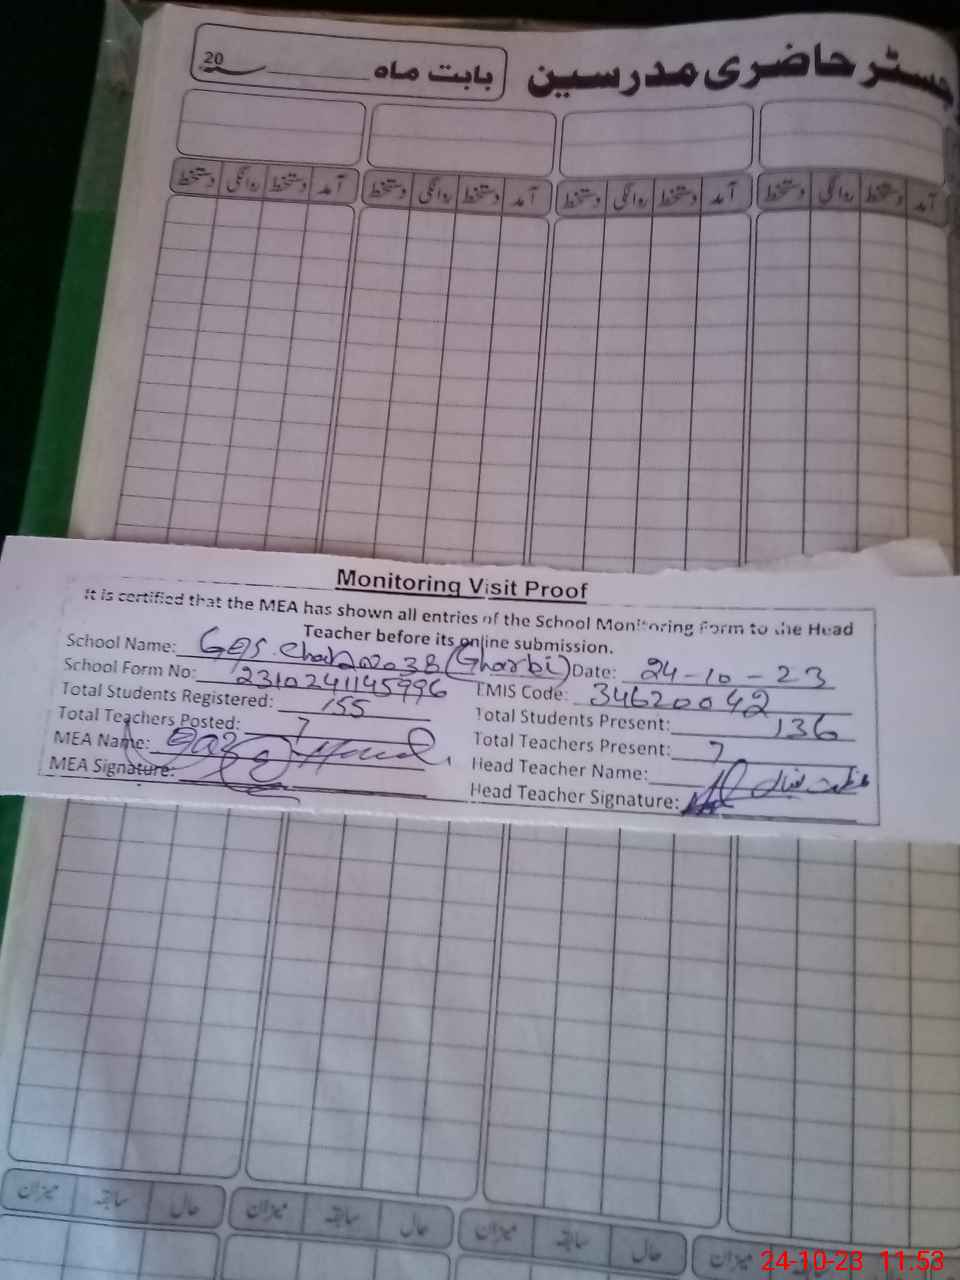 جسٹر حاضری مدرسین بابت ماہ 20
آمد دستخط روانگی دستخط آمد دستخط روانگی دستخط آمد دستخط روانگی دستخط آمد دستخط روانگی دستخط
Monitoring Visit Proof
It is certified that the MEA has shown all entries of the School Monitoring Form to the Head
Teacher before its online submission.
School Name: (Gharbi) Date: 24-10-23
School Form No: 2310241145996 EMIS Code: 34620042
Total Students Registered: 155 Total Students Present: 136
Total Teachers Posted: 7 Total Teachers Present: 7
MEA Name: Head Teacher Name:
MEA Signature: Head Teacher Signature:
حال سابقہ میزان حال سابقہ میزان حال سابقہ میزان
میزان
24-10-23 11:53